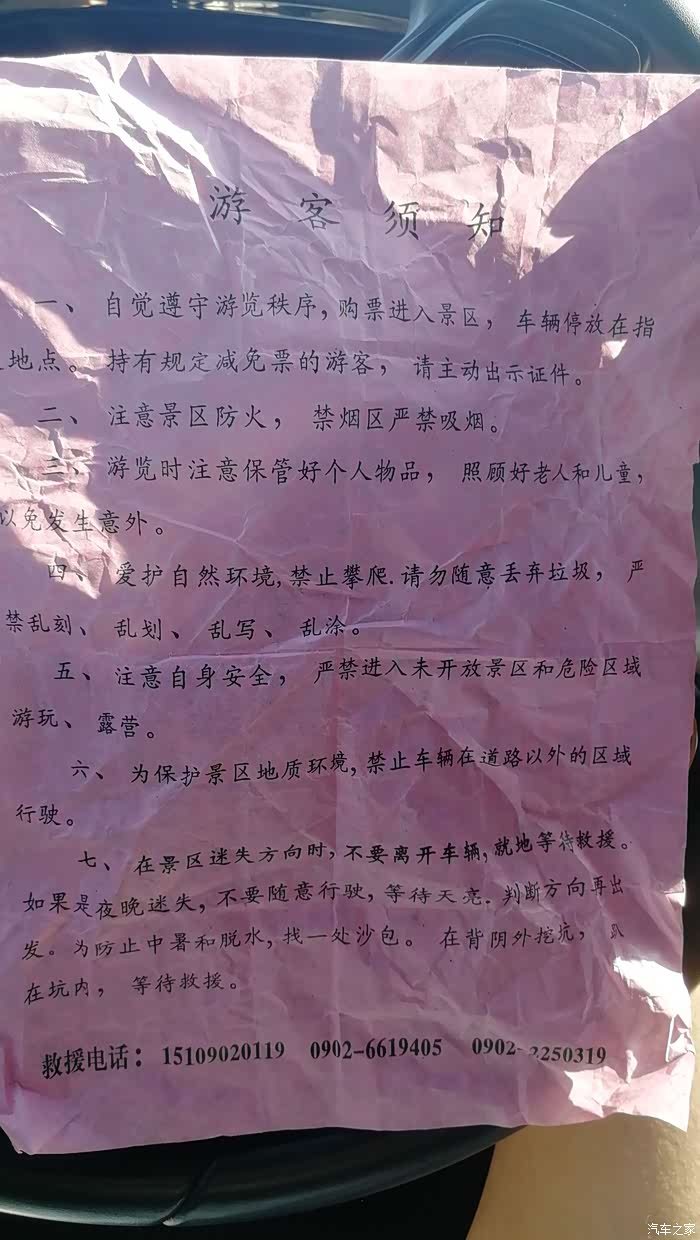 游客须知
一、自觉遵守游览秩序,购票进入景区,车辆停放在指
地点。持有规定减免票的游客,请主动出示证件。
二、注意景区防火,禁烟区严禁吸烟。
三、游览时注意保管好个人物品,照顾好老人和儿童,
以免发生意外。
四、爱护自然环境,禁止攀爬.请勿随意丢弃垃圾,严
禁乱刻、乱划、乱写、乱涂。
五、注意自身安全,严禁进入未开放景区和危险区域
游玩、露营。
六、为保护景区地质环境,禁止车辆在道路以外的区域
行驶。
七、在景区迷失方向时,不要离开车辆,就地等待救援。
如果是夜晚迷失,不要随意行驶,等待天亮.判断方向再出
发。为防止中暑和脱水,找一处沙包。在背阴外挖坑,趴
在坑内,等待救援。
救援电话:15109020119 0902-6619405 0902-2250319
汽车之家